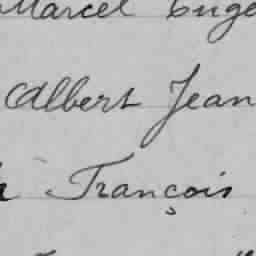 Marcel Euge
Albert Jean
François